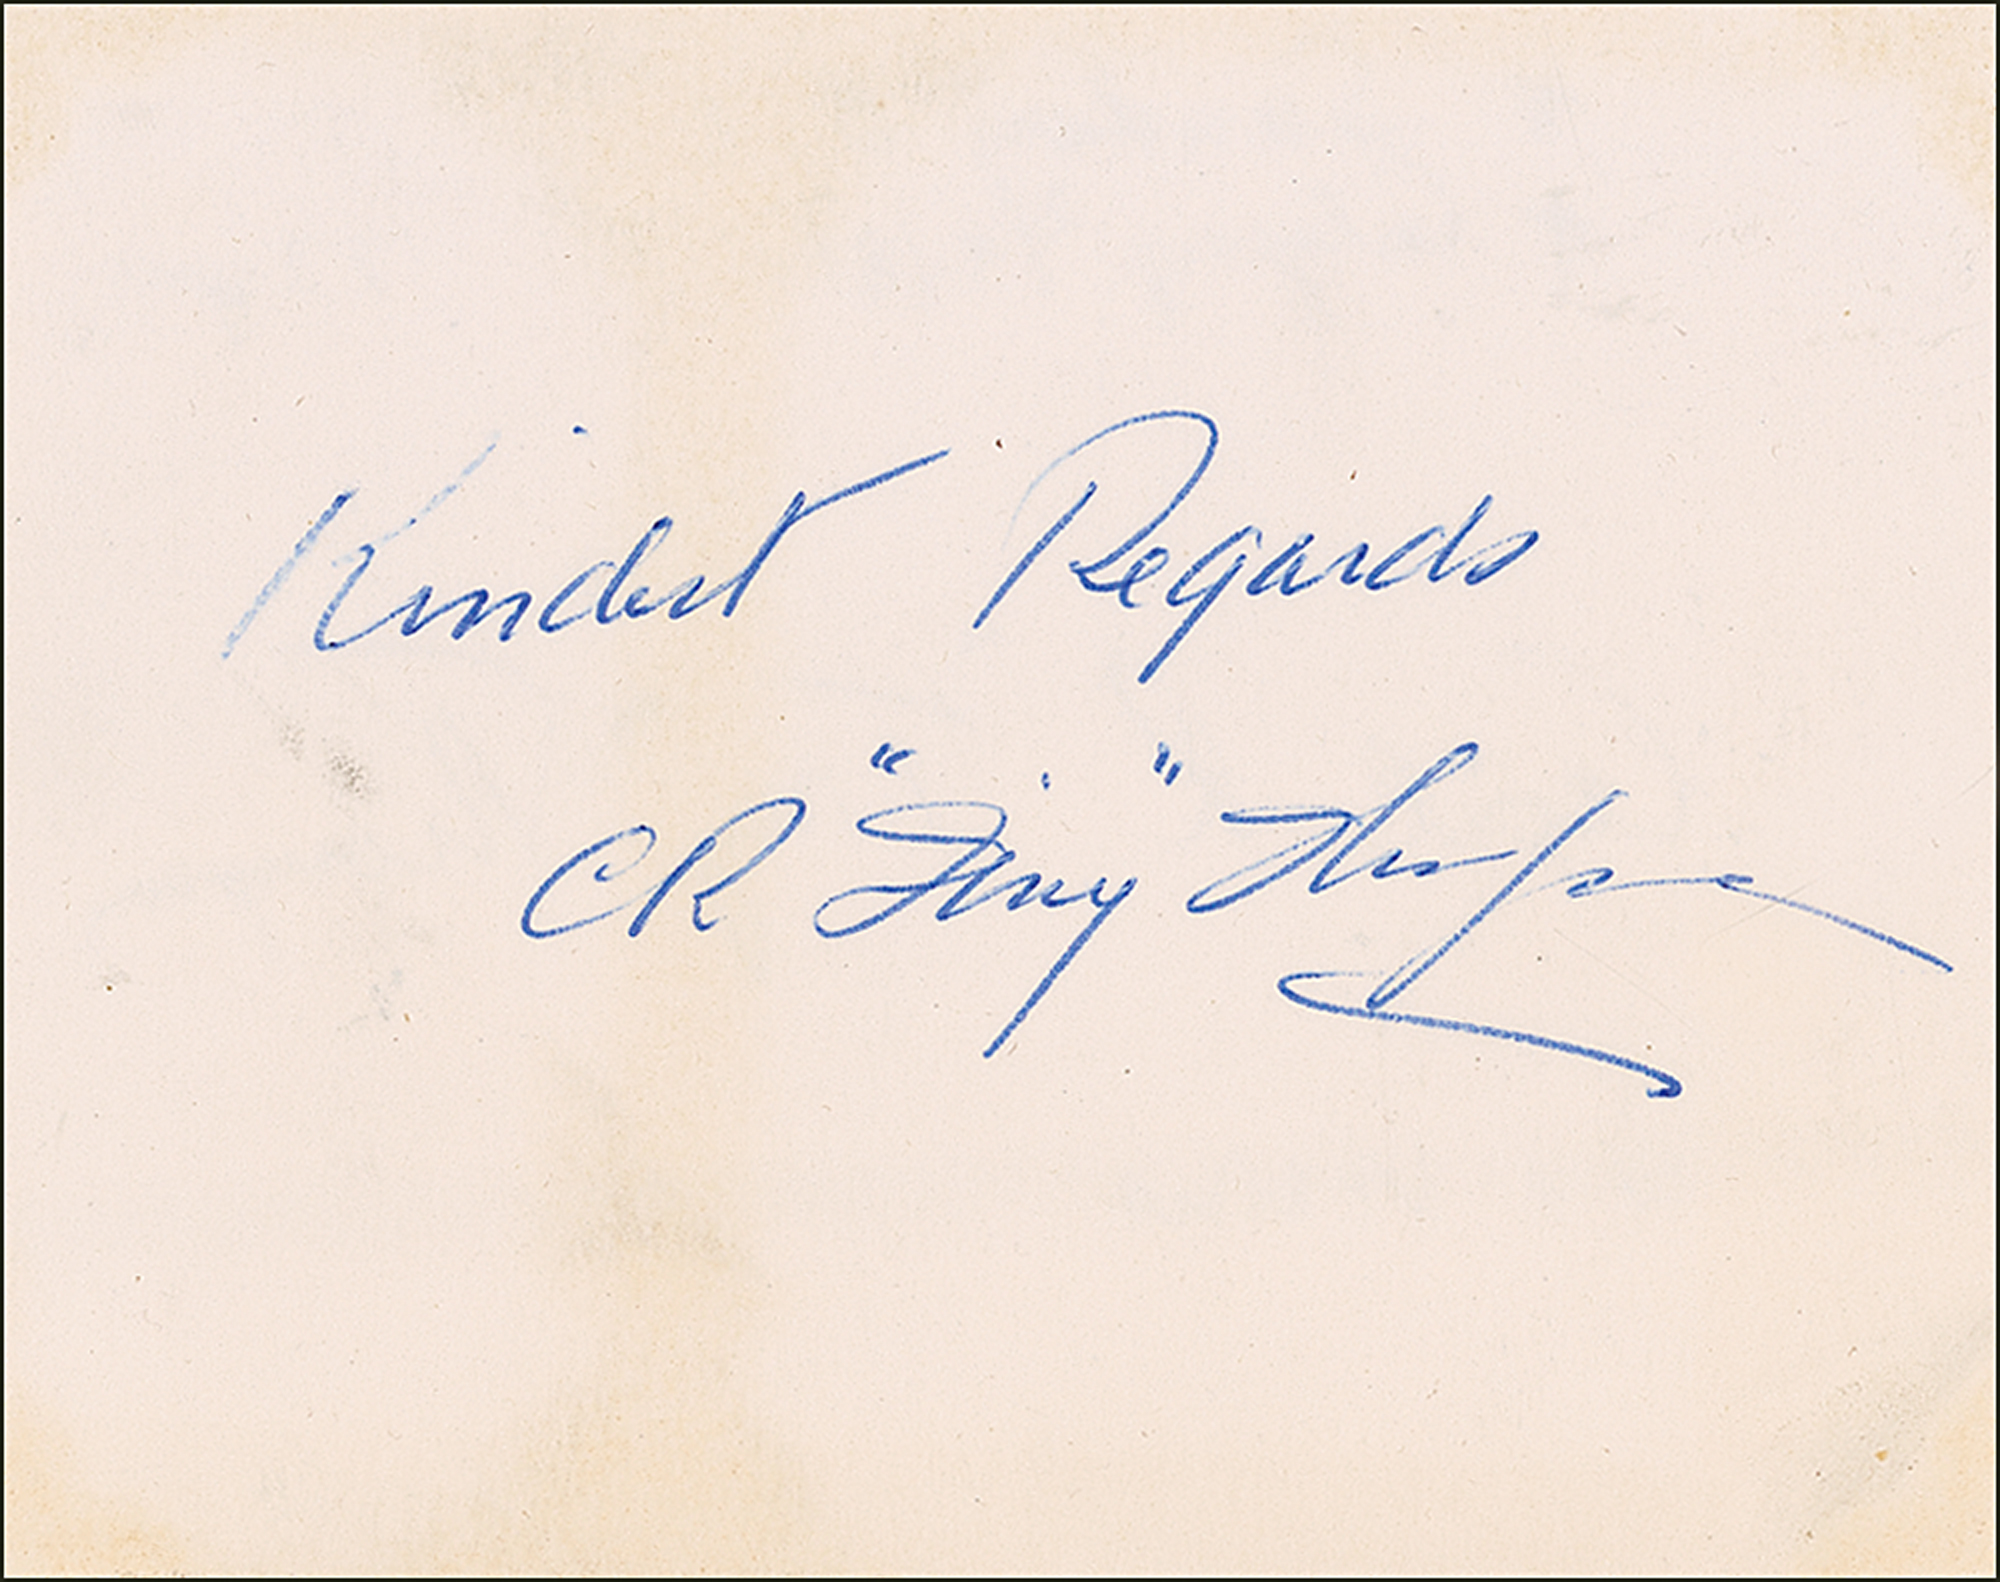 Kindest Regards
CR "Tiny" Thorpe